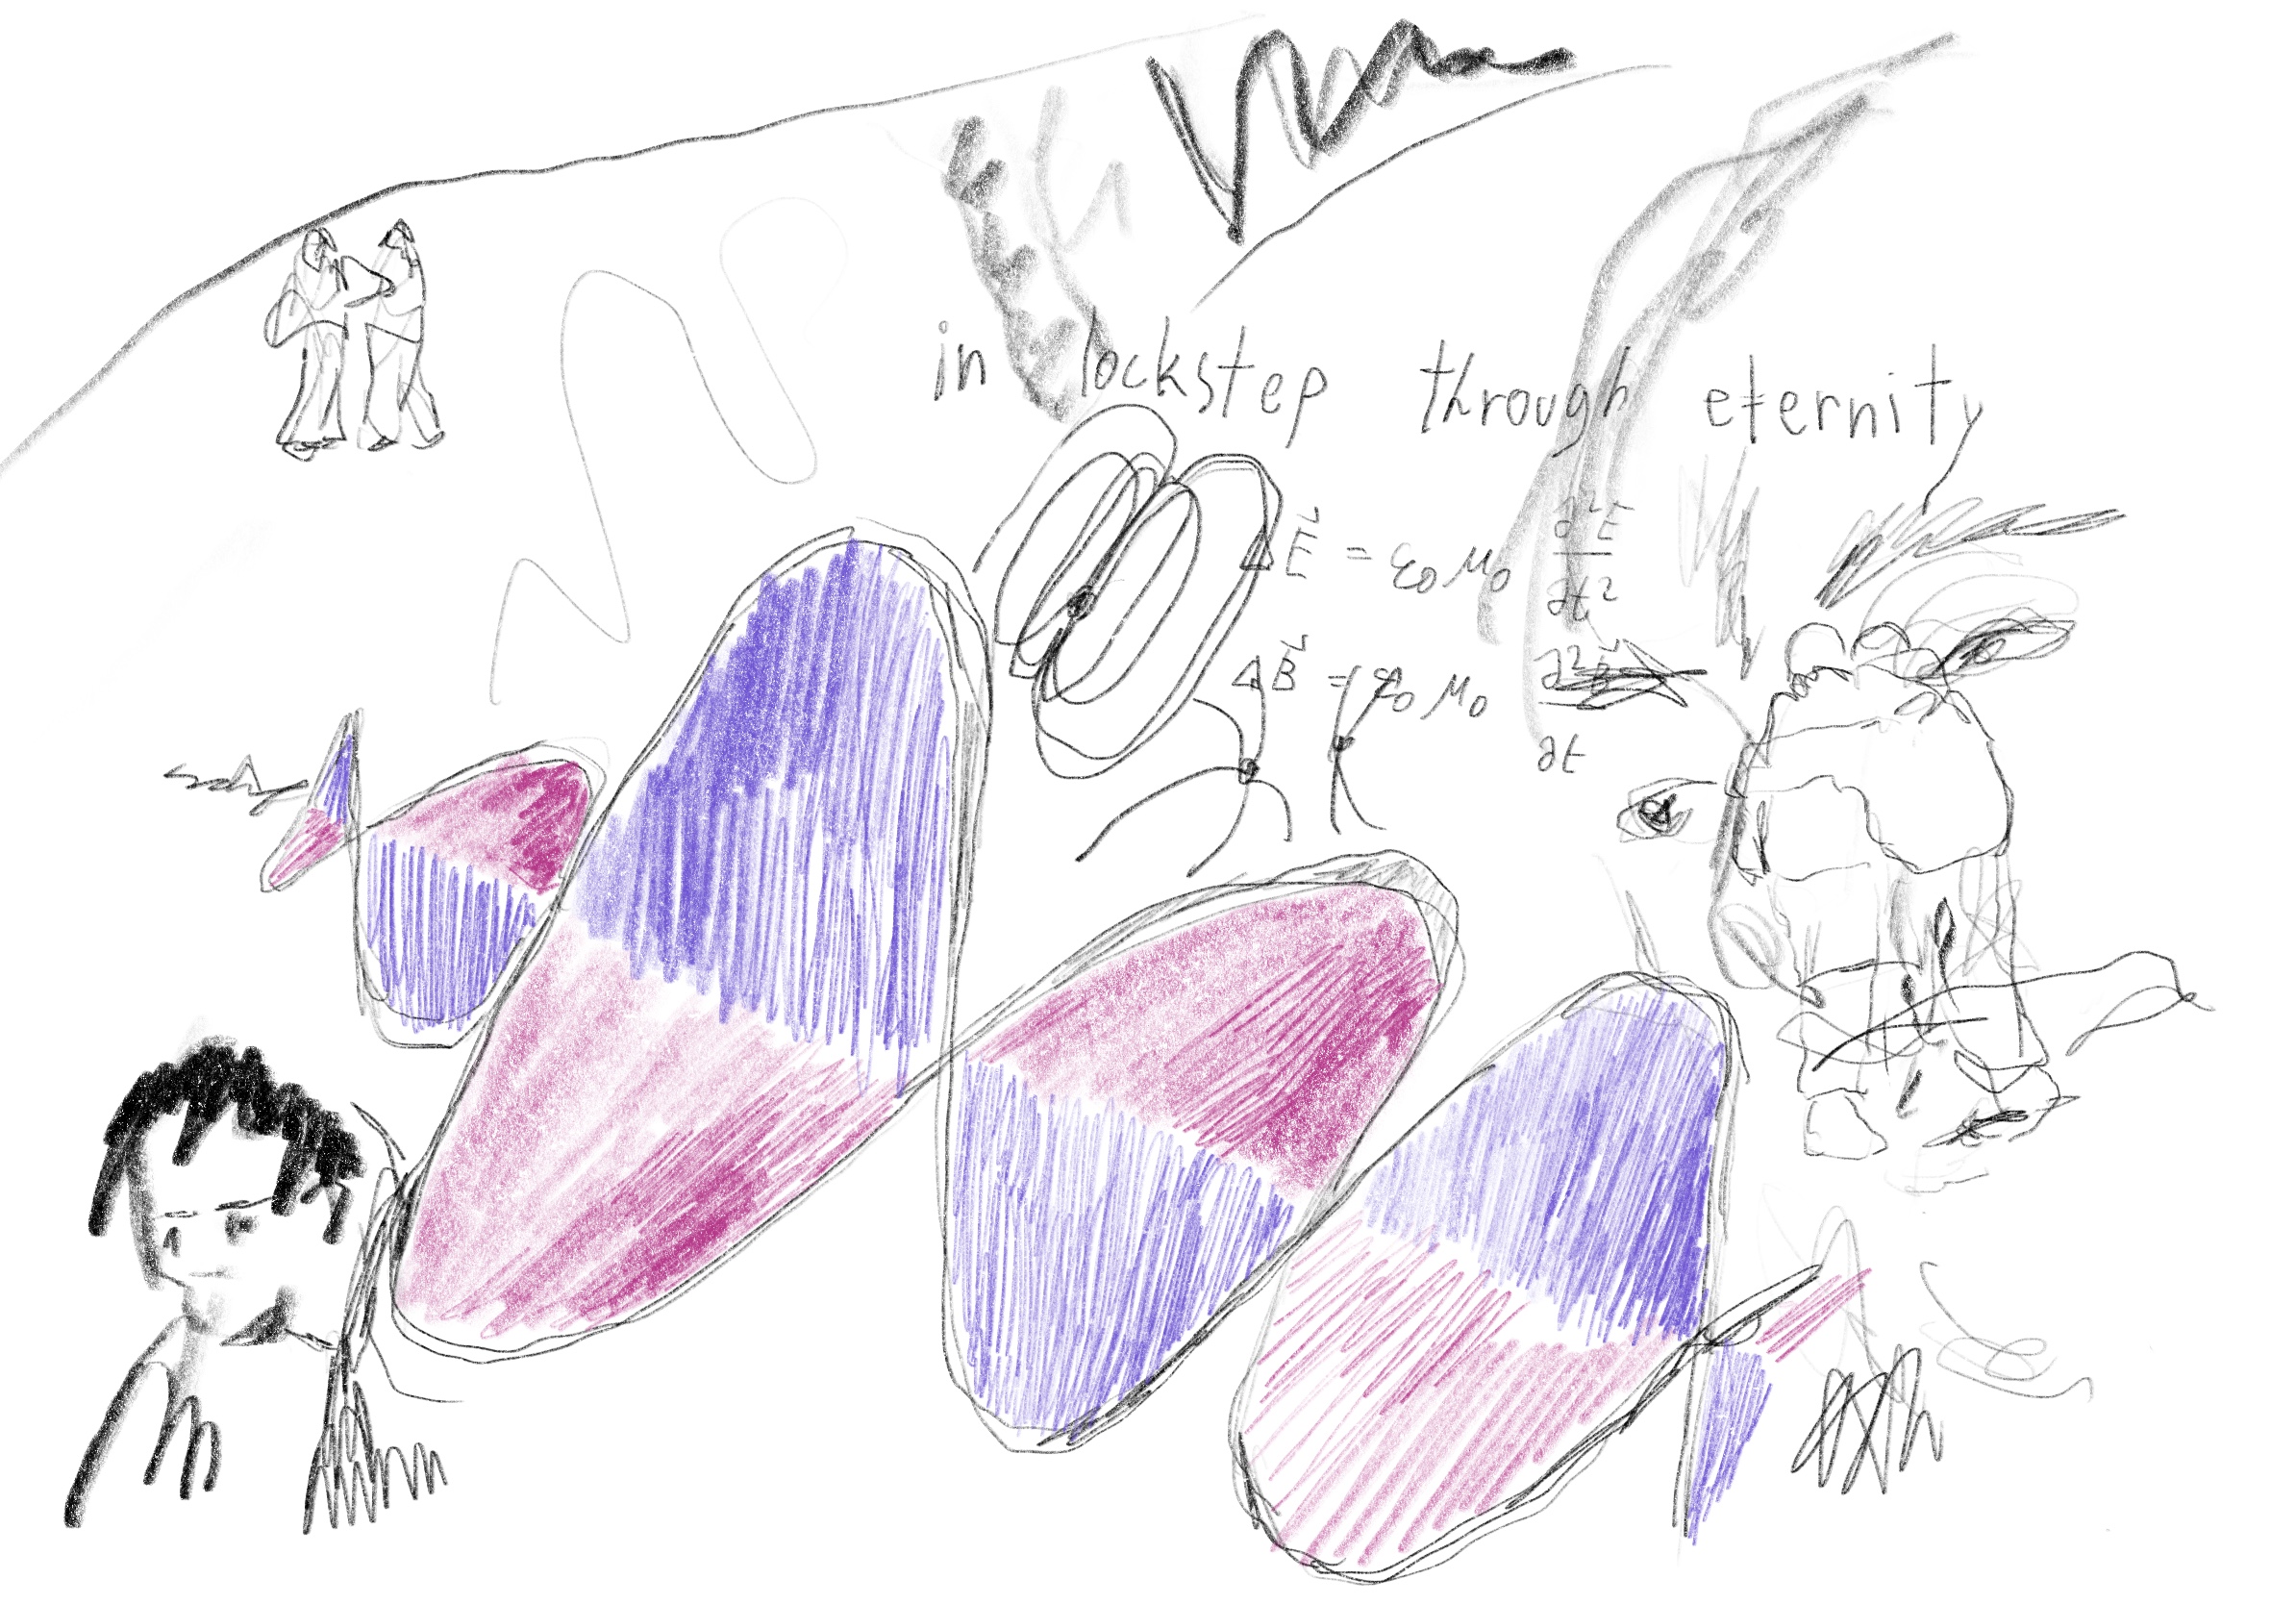 in lockstep through eternity
Δ E⃗ = ε₀ μ₀ ∂²E⃗ / ∂t²
Δ B⃗ = ε₀ μ₀ ∂²B⃗ / ∂t